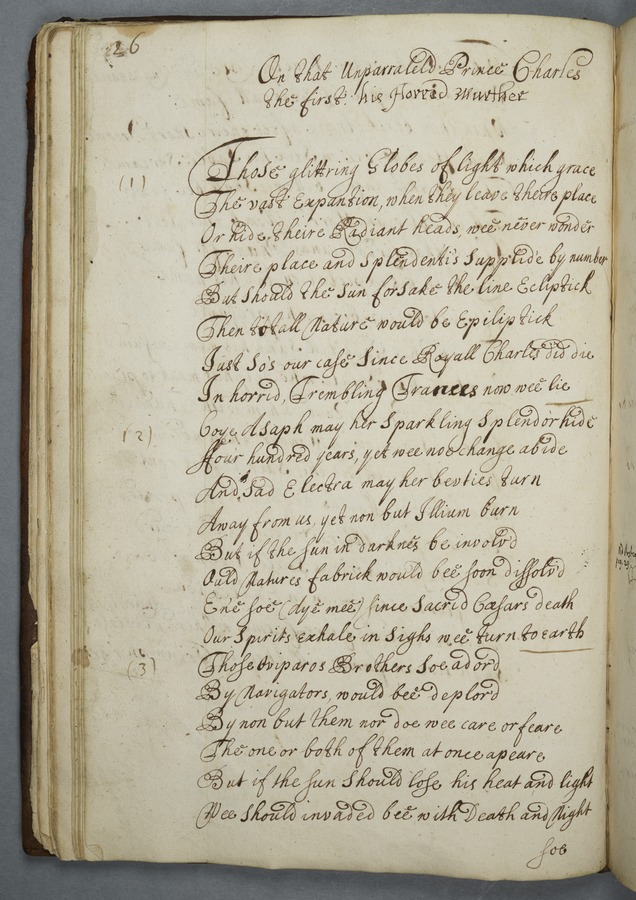 26
On that Unparraleld Prince Charles
the first. his Horrid Murther
(1)
Those glittring Globes of light which grace
The vast Expantion, when they leave theire place
Or hide theire Radiant heads, wee never wonder
Theire place and Splendentis Supplide by number
But should the Sun forsake the line Ecliptick
Then totall Nature would be Epiliptick
Just so's our case Since Royall Charles did die
In horrid, Trembling Trances now wee lie
(2)
Coye Asaph may her Sparkling Splendor hide
Ffour hundred years, yet wee noe change abide
And Sad Electra may her bevties turn
Away from us, yet non but Illium burn
But if the sun in darknes be involv'd
Ould Natures fabrick would bee soon dissolv'd
Ene soe (aye mee) since Sacrid Cæsars death
Our Spirits exhale in Sighs wee turn to earth
(3)
Those Oviparos Brothers Soe ador'd
By Navigators, would bee deplor'd
By non but them nor doe wee care or feare
The one or both of them at once apeare
But if the sun should lose his heat and light
Wee should invaded bee with Death and Night
soe